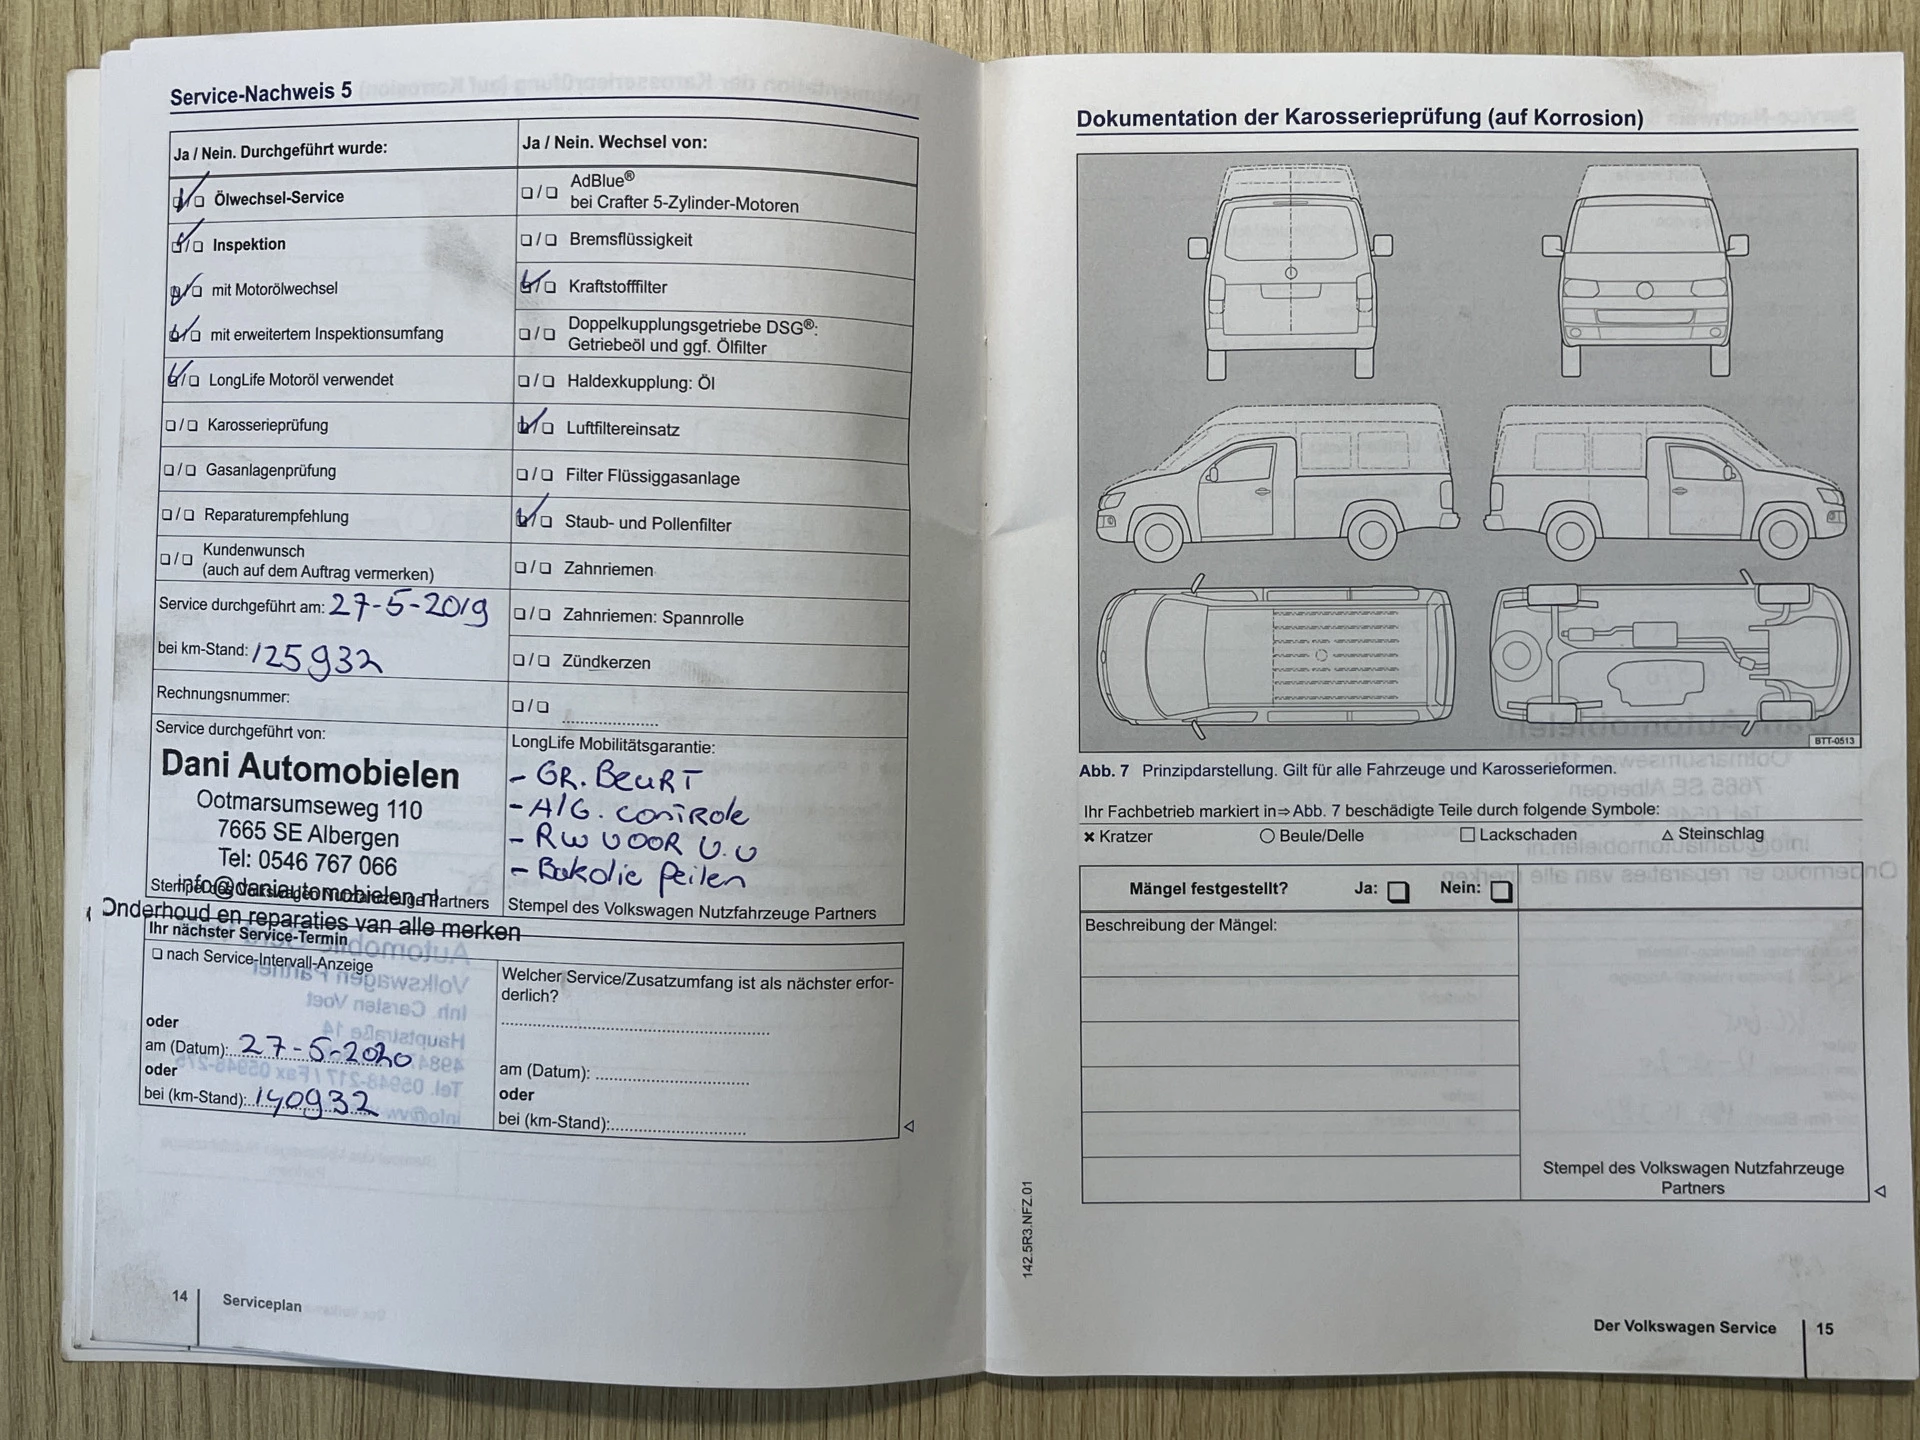 Service-Nachweis 5
Ja / Nein. Durchgeführt wurde:
❏/❏ Ölwechsel-Service
❏/❏ Inspektion
❏/❏ mit Motorölwechsel
❏/❏ mit erweitertem Inspektionsumfang
❏/❏ LongLife Motoröl verwendet
❏/❏ Karosserieprüfung
❏/❏ Gasanlagenprüfung
❏/❏ Reparaturempfehlung
❏/❏ Kundenwunsch
(auch auf dem Auftrag vermerken)
Service durchgeführt am: 27-5-2019
bei km-Stand: 125932
Rechnungsnummer:
Service durchgeführt von:
Dani Automobielen
Ootmarsumseweg 110
7665 SE Albergen
Tel: 0546 767 066
info@daniautomobielen.nl
Stempel des Volkswagen Nutzfahrzeuge Partners
Onderhoud en reparaties van alle merken
Ja / Nein. Wechsel von:
❏/❏ AdBlue®
bei Crafter 5-Zylinder-Motoren
❏/❏ Bremsflüssigkeit
❏/❏ Kraftstofffilter
❏/❏ Doppelkupplungsgetriebe DSG®:
Getriebeöl und ggf. Ölfilter
❏/❏ Haldexkupplung: Öl
❏/❏ Luftfiltereinsatz
❏/❏ Filter Flüssiggasanlage
❏/❏ Staub- und Pollenfilter
❏/❏ Zahnriemen
❏/❏ Zahnriemen: Spannrolle
❏/❏ Zündkerzen
❏/❏ ....................
LongLife Mobilitätsgarantie:
- GR. BEURT
- A/G. CONTROLE
- RW VOOR V.V
- Bakdie Peilen
Stempel des Volkswagen Nutzfahrzeuge Partners
Ihr nächster Service-Termin
❏ nach Service-Intervall-Anzeige
oder
am (Datum): 27-5-2020
oder
bei (km-Stand): 140932
Welcher Service/Zusatzumfang ist als nächster erfor-
derlich?
am (Datum):
oder
bei (km-Stand):
14 Serviceplan
Dokumentation der Karosserieprüfung (auf Korrosion)
BTT-0513
Abb. 7 Prinzipdarstellung. Gilt für alle Fahrzeuge und Karosserieformen.
Ihr Fachbetrieb markiert in⇒Abb. 7 beschädigte Teile durch folgende Symbole:
× Kratzer ○ Beule/Delle □ Lackschaden △ Steinschlag
Mängel festgestellt? Ja: ❏ Nein: ❏
Beschreibung der Mängel:
Stempel des Volkswagen Nutzfahrzeuge
Partners
142.5R3.NFZ.01
Der Volkswagen Service 15